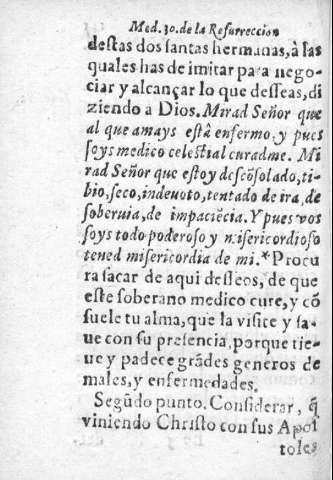 Med. 30. de la Resurreccion
destas dos santas hermanas, à las
quales has de imitar para nego-
ciar y alcançar lo que desseas, di
ziendo a Dios. Mirad Señor que
al que amays està enfermo, y pues
soys medico celestial curadme. Mi
rad Señor que estoy descõsolado, ti-
bio, seco, indeuoto, tentado de ira, de
soberuia, de impaciẽcia. Y pues vos
soys todo poderoso y misericordioso
tened misericordia de mi.* Procu
ra sacar de aqui desseos, de que
este soberano medico cure, y cõ
suele tu alma, que la visite y sa-
ue con su presencia, porque tie-
ue y padece grãdes generos de
males, y enfermedades.
Segũdo punto. Considerar, q̃
viniendo Christo con sus Apos
toles